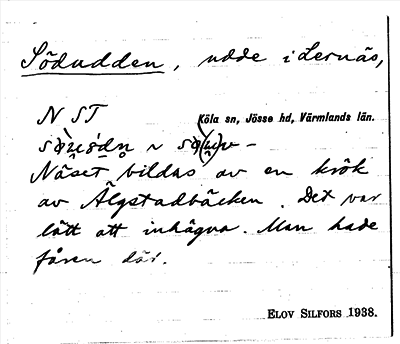 Södudden, udde i Lernäs,
N ST Köla sn, Jösse hd, Värmlands län.
Näset bildas av en krök
av Älgstadbäcken. Det var
lätt att inhägna. Man hade
fåren där.
ELOV SILFORS 1938.